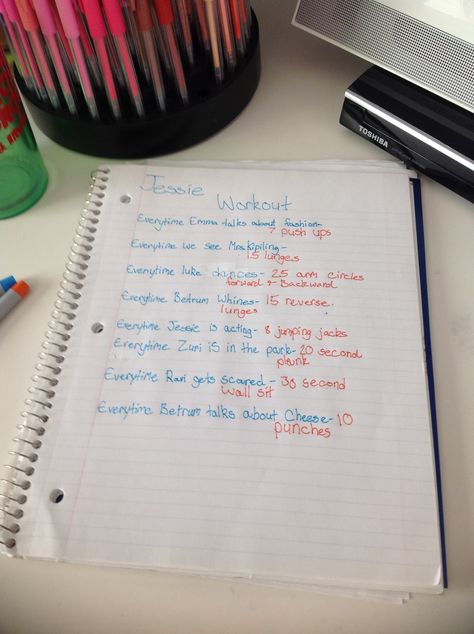 TOSHIBA
Jessie
Workout
Everytime Emma talks about fashion-
7 push ups
Everytime we see Mrs.kipiling-
15 lunges
Everytime luke dances- 25 arm circles
forward & Backward
Everytime Betrum Whines- 15 reverse.
lunges
Everytime Jessie is acting- 8 jumping jacks
Everytime Zuri is in the park- 20 second
plank
Everytime Ravi gets scared- 30 second
wall sit
Everytime Betrum talks about Cheese- 10
punches